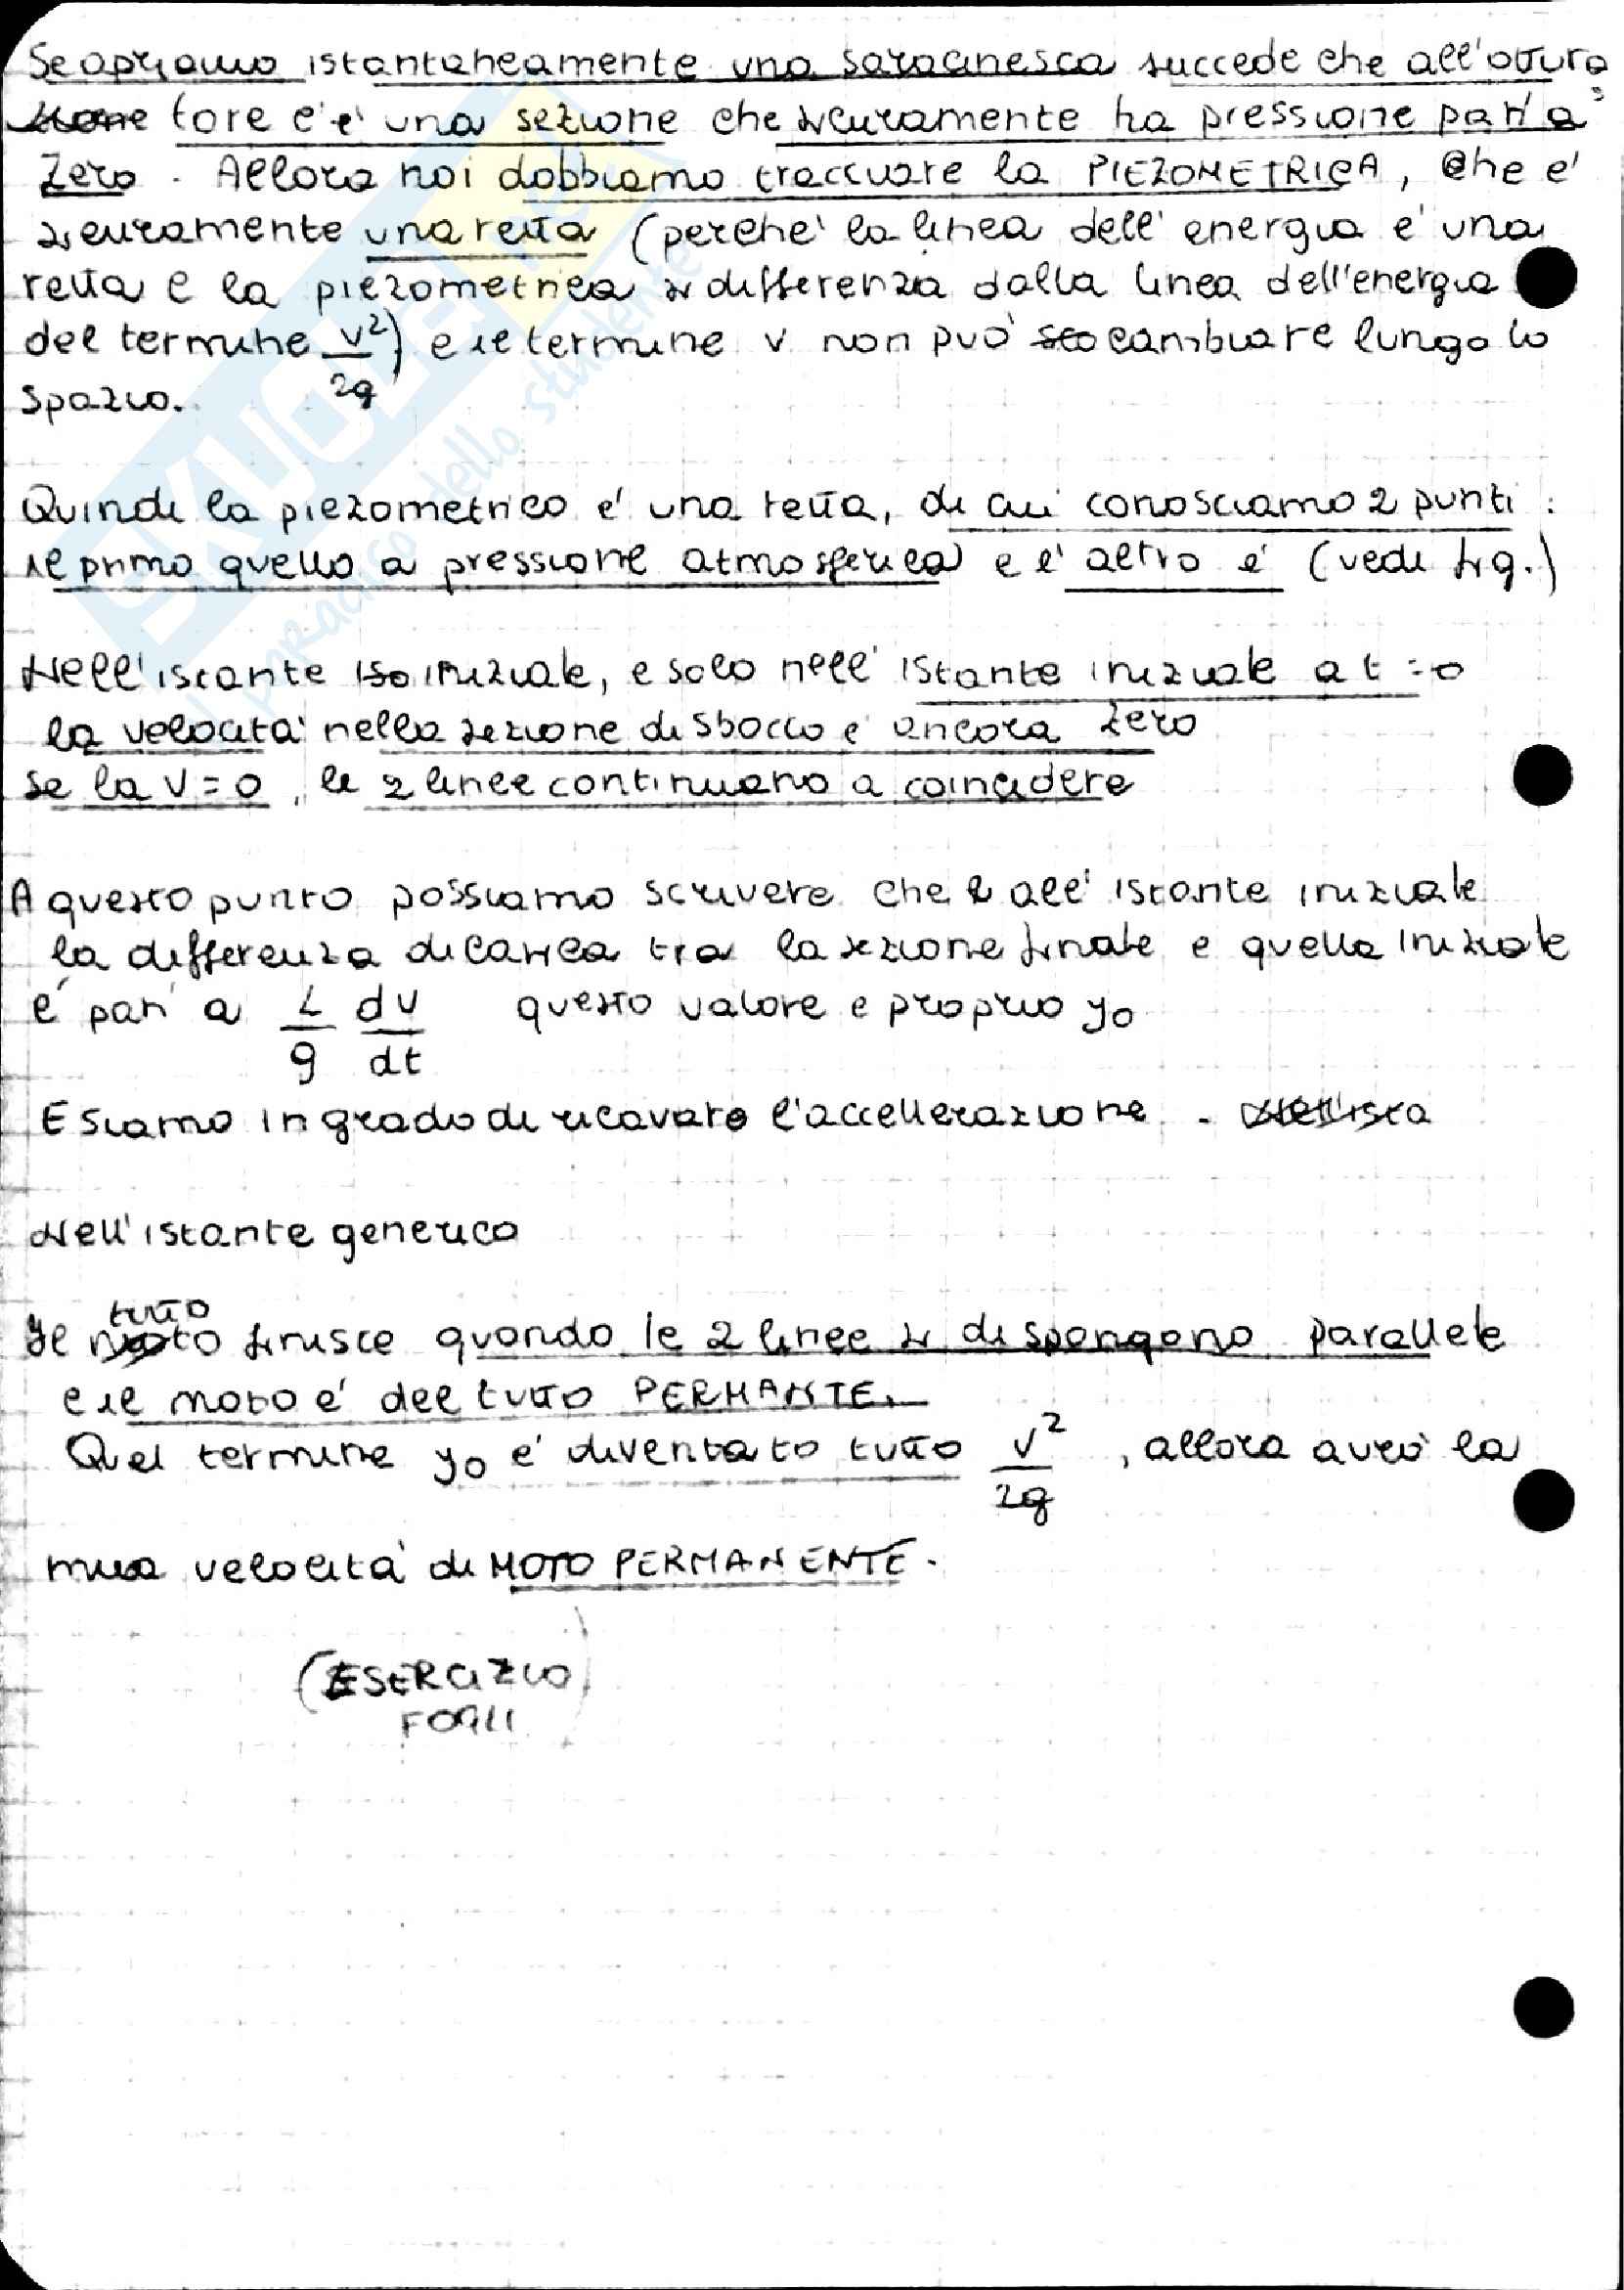 Se apriamo istantaneamente una saracinesca succede che all'ottura
tore c'è una sezione che sicuramente ha pressione pari a
zero. Allora noi dobbiamo tracciare la PIEZOMETRICA, che e'
sicuramente una retta (perche' la linea dell'energia e' una
retta e la piezometrica si differenzia dalla linea dell'energia
del termine v²/2g) e il termine v non può cambiare lungo lo
spazio.
Quindi la piezometrica e' una retta, di cui conosciamo 2 punti:
il primo quello a pressione atmosferica e l'altro e' (vedi fig.)
Nell'istante iniziale, e solo nell'istante iniziale a t=0
la velocita' nella sezione di sbocco e' ancora zero
se la v=0, le 2 linee continuano a coincidere
A questo punto possiamo scrivere che all'istante iniziale
la differenza di carica tra la sezione finale e quella iniziale
e' pari a L/g dv/dt questo valore e proprio y₀
E siamo in grado di ricavare l'accellerazione.
Nell'istante generico
Il tutto finisce quando le 2 linee si dispongono parallele
e il moto e' del tutto PERMANTE.
Quel termine y₀ e' diventato tutto v²/2g, allora avrò la
mia velocita' di MOTO PERMANENTE.
(ESERCIZIO
FOGLI)
SKUOLA.net
il portale dello studente